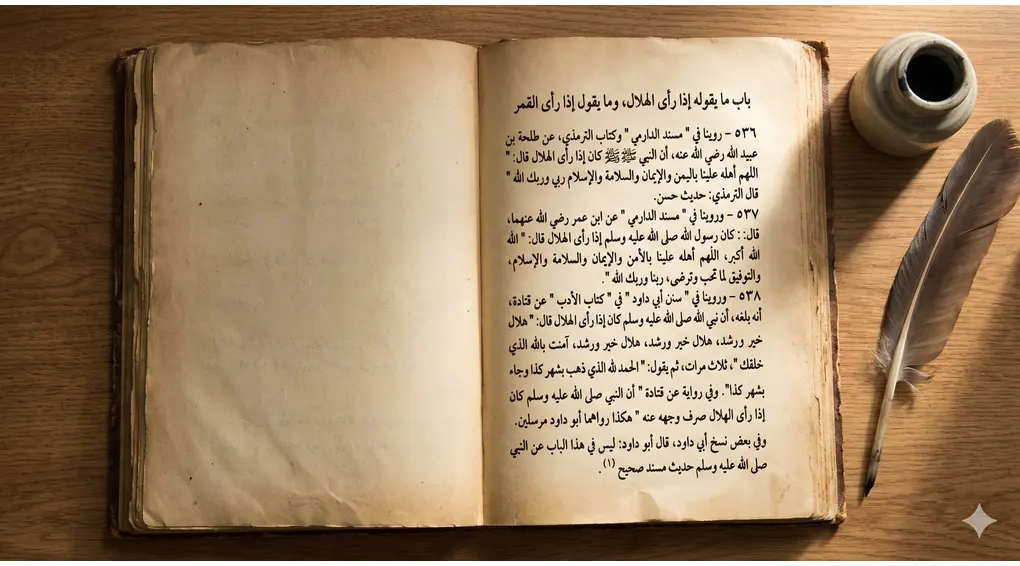 باب ما يقوله إذا رأى الهلال، وما يقول إذا رأى القمر
٥٣٦ - روينا في " مسند الدارمي " وكتاب الترمذي، عن طلحة بن
عبيد الله رضي الله عنه، أن النبي ﷺ ﷺ كان إذا رأى الهلال قال: "
اللهم أهله علينا باليمن والإيمان والسلامة والإسلام ربي وربك الله "
قال الترمذي: حديث حسن.
٥٣٧ - وروينا في " مسند الدارمي " عن ابن عمر رضي الله عنهما،
قال: : كان رسول الله صلى الله عليه وسلم إذا رأى الهلال قال: " الله
الله أكبر، اللهم أهله علينا بالأمن والإيمان والسلامة والإسلام،
والتوفيق لما تحب وترضى، ربنا وربك الله ".
٥٣٨ - وروينا في " سنن أبي داود " في " كتاب الأدب " عن قتادة،
أنه بلغه، أن نبي الله صلى الله عليه وسلم كان إذا رأى الهلال قال: " هلال
خير ورشد، هلال خير ورشد، هلال خير ورشد، آمنت بالله الذي
خلقك "، ثلاث مرات، ثم يقول: " الحمد لله الذي ذهب بشهر كذا وجاء
بشهر كذا". وفي رواية عن قتادة " أن النبي صلى الله عليه وسلم كان
إذا رأى الهلال صرف وجهه عنه " هكذا رواهما أبو داود مرسلين.
وفي بعض نسخ أبي داود، قال أبو داود: ليس في هذا الباب عن النبي
صلى الله عليه وسلم حديث مسند صحيح (١) .